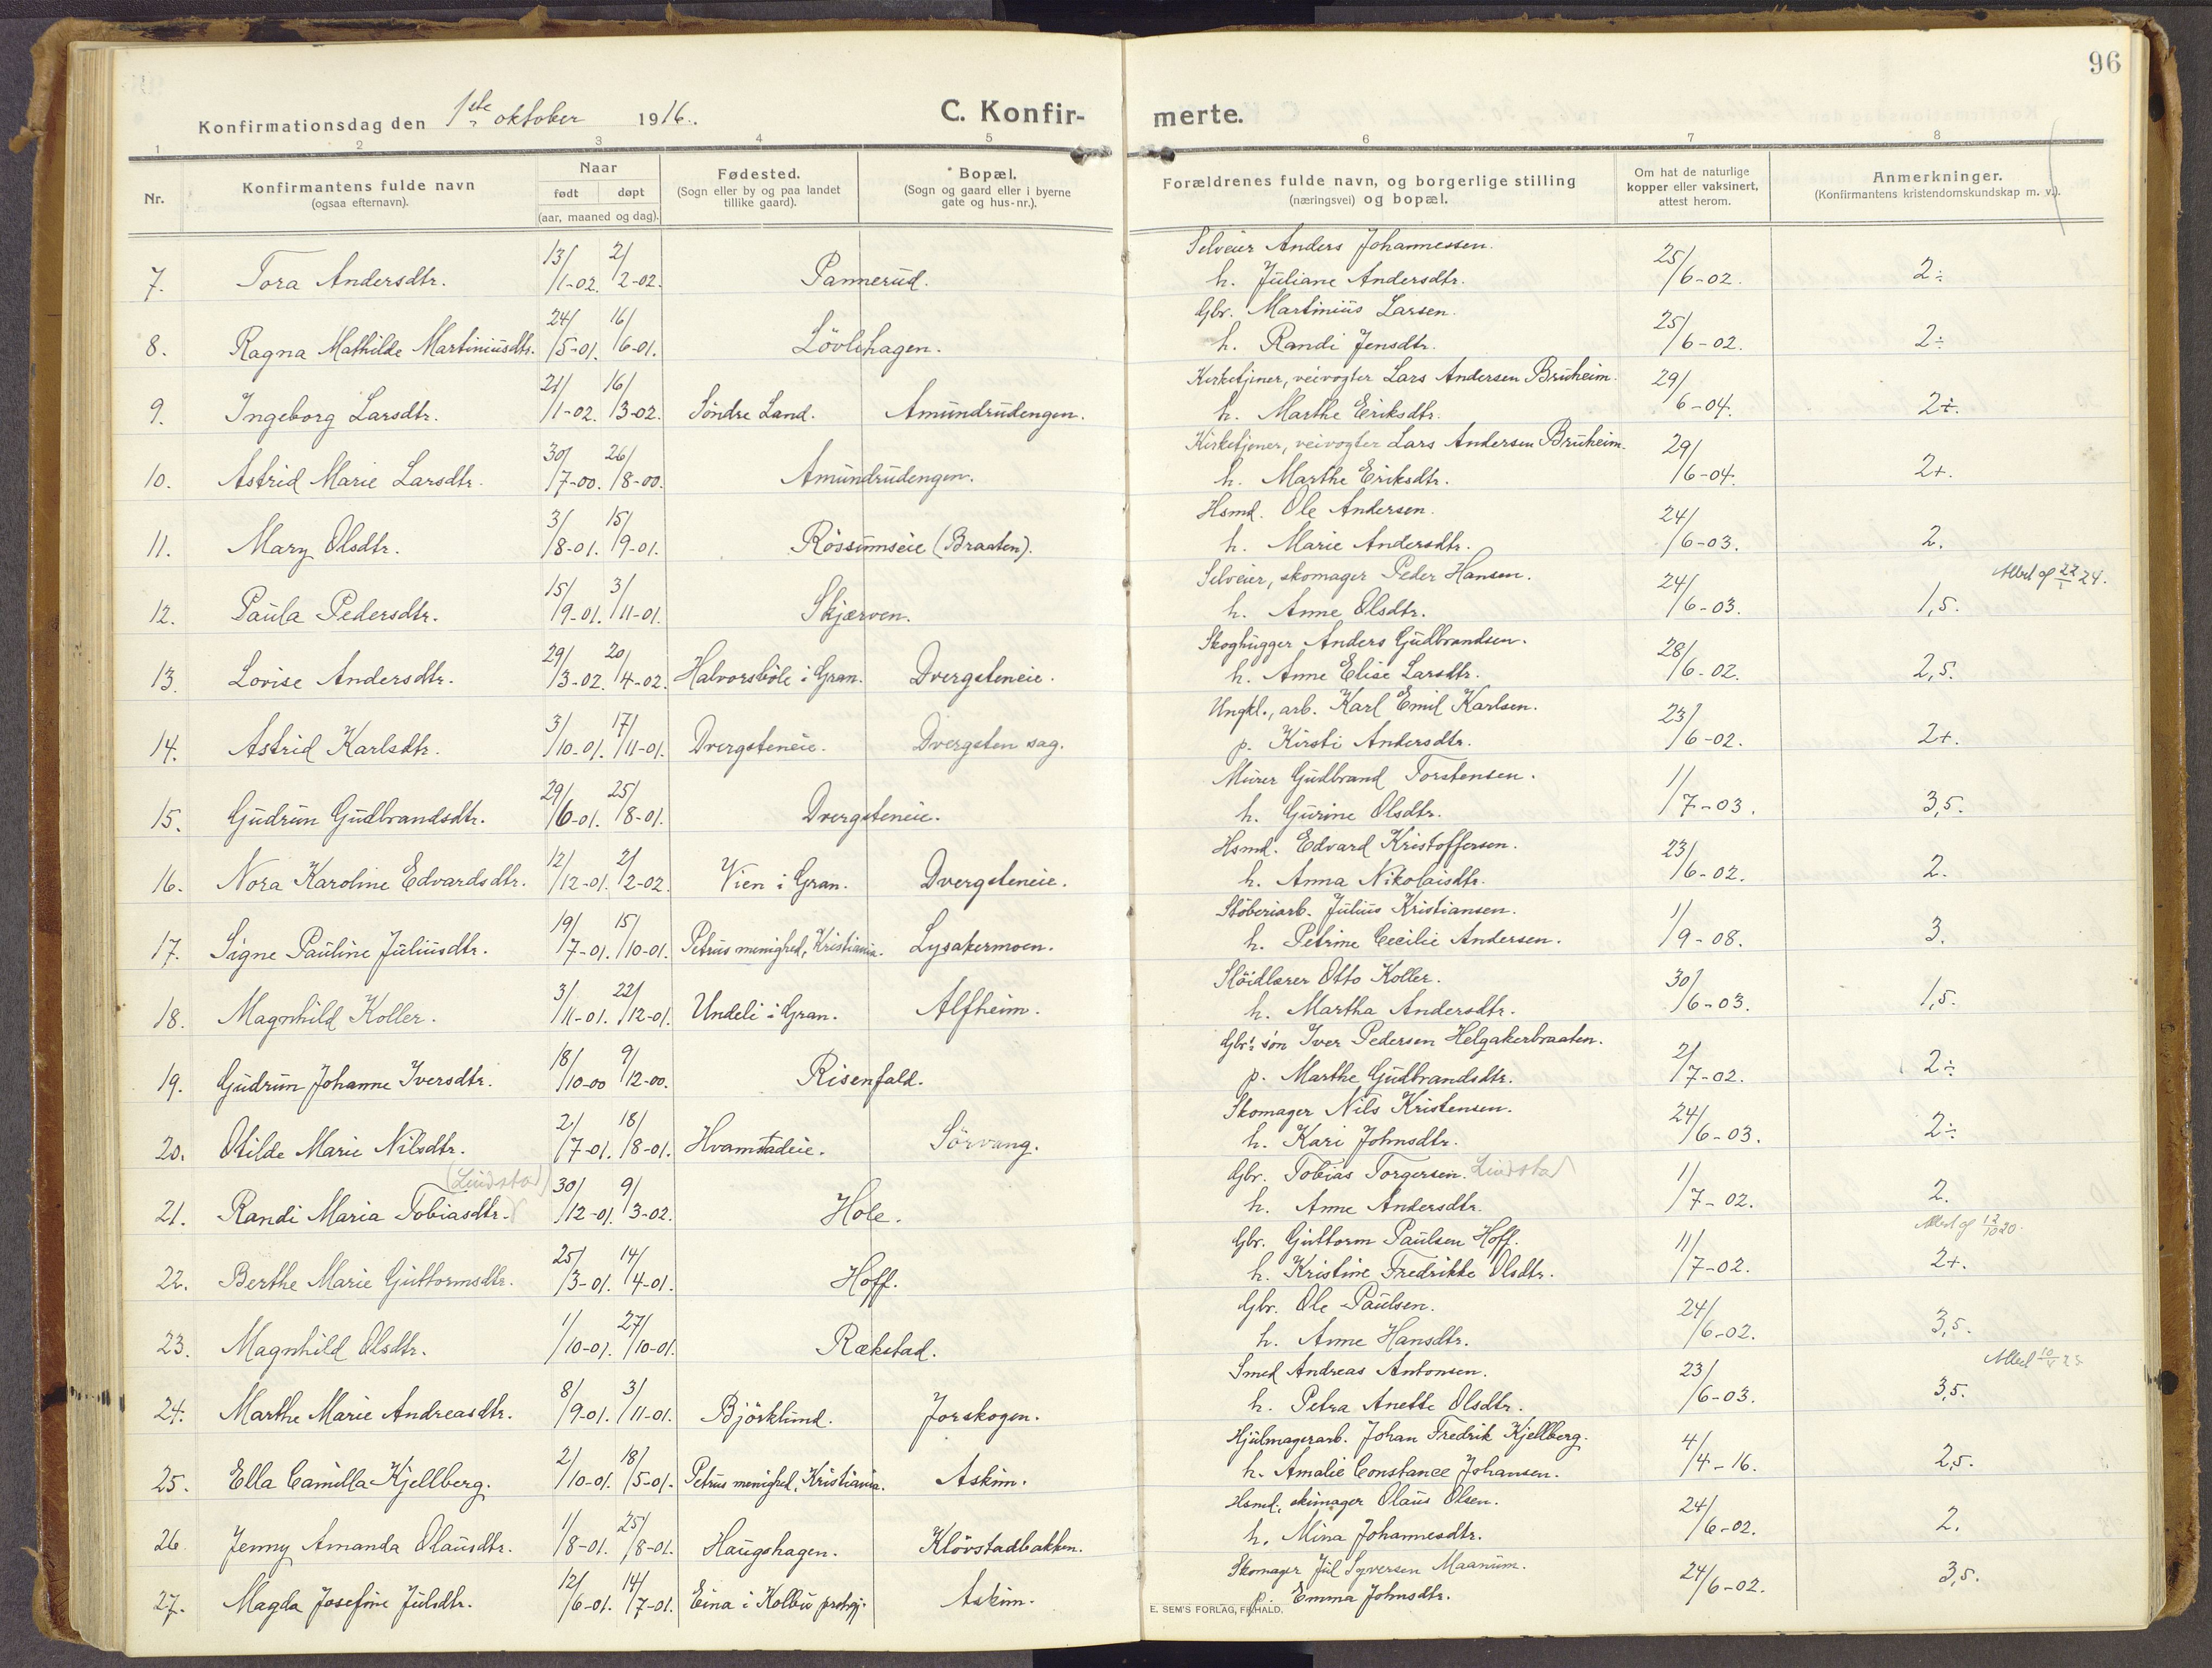 96
Konfirmationsdag den 1ste oktober 1916.
C. Konfirmerte.
1 2 3 4 5 6 7 8
Nr.
Konfirmantens fulde navn
(ogsaa efternavn).
Naar
født døpt
(aar, maaned og dag).
Fødested.
(Sogn eller by og paa landet
tillike gaard).
Bopæl.
(Sogn og gaard eller i byerne
gate og hus-nr.).
Forældrenes fulde navn, og borgerlige stilling
(næringsvei) og bopæl.
Om hat de naturlige
kopper eller vaksinert,
attest herom.
Anmerkninger.
(Konfirmantens kristendomskundskap m. v.).
7. Tora Andersdtr. 13/1-02. 2/2-02. Pannerud. Selveier Anders Johannessen. 25/6-02. 2÷
h. Juliane Andersdtr.
8. Ragna Mathilde Martiniusdtr. 24/5-01. 16/6-01. Lövlihagen. Gbr. Martinius Larsen. 25/6-02. 2÷
h. Randi Jensdtr.
9. Ingeborg Larsdtr. 21/1-02. 16/3-02. Söndre Land. Amundrudengen. Kirketjener, veivogter Lars Andersen Bruheim. 29/6-04. 2+.
h. Marthe Eriksdtr.
10. Astrid Marie Larsdtr. 30/7-00. 26/8-00. Amundrudengen. Kirketjener, veivogter Lars Andersen Bruheim. 29/6-04. 2+.
h. Marthe Eriksdtr.
11. Mary Olsdtr. 3/8-01. 15/9-01. Rössumseie (Braaten). Hsmd. Ole Andersen. 24/6-03. 2.
h. Marie Andersdtr.
12. Paula Pedersdtr. 15/9-01. 3/11-01. Skjærven. Selveier, skomager Peder Hansen. 24/6-03. 1,5. 24.
h. Anne Olsdtr.
13. Lovise Andersdtr. 29/3-02. 20/4-02. Halvorsböle i Gran. Dvergsteneie. Skoghugger Anders Gudbrandsen. 28/6-02. 2,5.
h. Anne Elise Larsdtr.
14. Astrid Karlsdtr. 3/10-01. 17/11-01. Dvergsteneie. Dvergsten sag. Ungkl., arb. Karl Emil Karlsen. 23/6-02. 2+.
p. Kirsti Andersdtr.
15. Gudrun Gudbrandsdtr. 29/6-01. 25/8-01. Dvergsteneie. Murer Gudbrand Torstensen. 1/7-03. 3,5.
h. Gurine Olsdtr.
16. Nora Karoline Edvardsdtr. 12/12-01. 2/2-02. Vien i Gran. Dvergsteneie. Hsmd. Edvard Kristoffersen. 23/6-02. 2.
h. Anna Nikolaisdtr.
17. Signe Pauline Juliusdtr. 19/7-01. 15/10-01. Petrus menighed, Kristiania. Lysakermoen. Stöberiarb. Julius Kristiansen. 1/9-08. 3.
h. Petrine Cecilie Andersen.
18. Magnhild Koller. 3/11-01. 22/12-01. Undeli i Gran. Alfheim. Slöidlærer Otto Koller. 30/6-03. 1,5.
h. Martha Andersdtr.
19. Gudrun Johanne Iversdtr. 18/10-00 9/12-00. Risenfald. Gbr's sön Iver Pedersen Helgakerbraaten. 2/7-02. 2÷
p. Marthe Gudbrandsdtr.
20. Otilde Marie Nilsdtr. 2/7-01. 18/8-01. Hvamstadeie. Sörvang. Skomager Nils Kristensen. 24/6-03. 2÷
h. Kari Johnsdtr.
(Lindstad)
21. Randi Maria Tobiasdtr. 30/12-01. 9/3-02. Hole. Gbr. Tobias Torgersen. Lindstad 1/7-02. 2.
h. Anne Andersdtr.
22. Berthe Marie Guttormsdtr. 25/3-01. 14/4-01. Hoff. Gbr. Guttorm Paulsen Hoff. 11/7-02. 2+. 12/10 20.
h. Kristine Fredrikke Olsdtr.
23. Magnhild Olsdtr. 1/10-01. 27/10-01. Rækstad. Gbr. Ole Paulsen. 24/6-02. 3,5.
h. Anne Hansdtr.
24. Marthe Marie Andreasdtr. 8/9-01. 3/11-01. Björklund. Jorskogen. Smed Andreas Antonsen. 23/6-03. 3,5.
h. Petra Anette Olsdtr.
25. Ella Camilla Kjellberg. 2/10-01. 18/5-01. Petrus menighed, Kristiania. Askim. Hjulmagerarb. Johan Fredrik Kjellberg. 4/4-16. 2,5.
h. Amalie Constance Johansen.
26. Jenny Amanda Olausdtr. 1/8-01. 25/8-01. Haugshagen. Klövstadbakken. Hsmd., skimager Olaus Olsen. 24/6-02. 2.
h. Mina Johannesdtr.
27. Magda Josefine Julsdtr. 12/6-01. 14/7-01. Eina i Kolbu prstgj. Askim. Skomager Jul Syversen Maanum. 24/6-02. 3,5.
p. Emma Johnsdtr.
E. SEM'S FORLAG, FR.HALD.